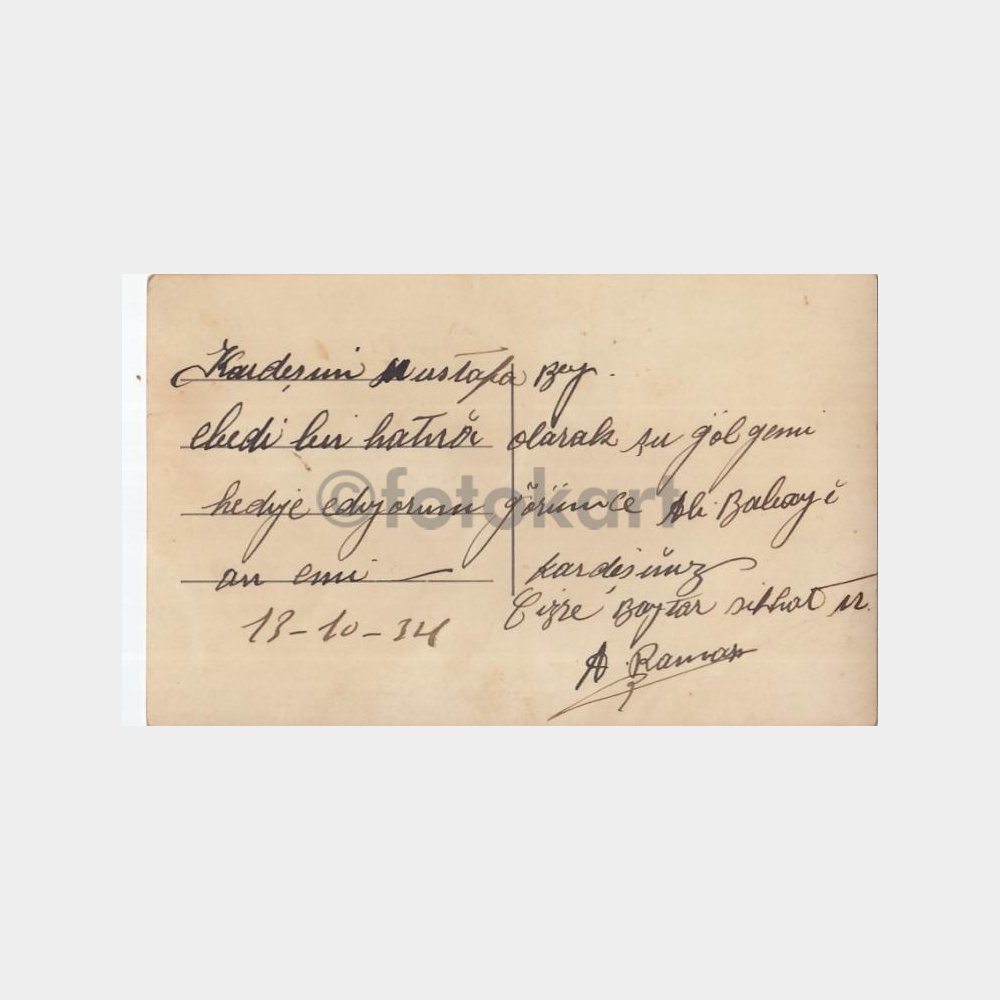 Kardeşim Mustafa Bey.
ebedi bir hatıra olarak şu gölgemi
hediye ediyorum görünce Ali Babayi
an emi — kardeşiniz
Cizre Baytar sıhhat
13-10-34
A. Raman
©fotokart